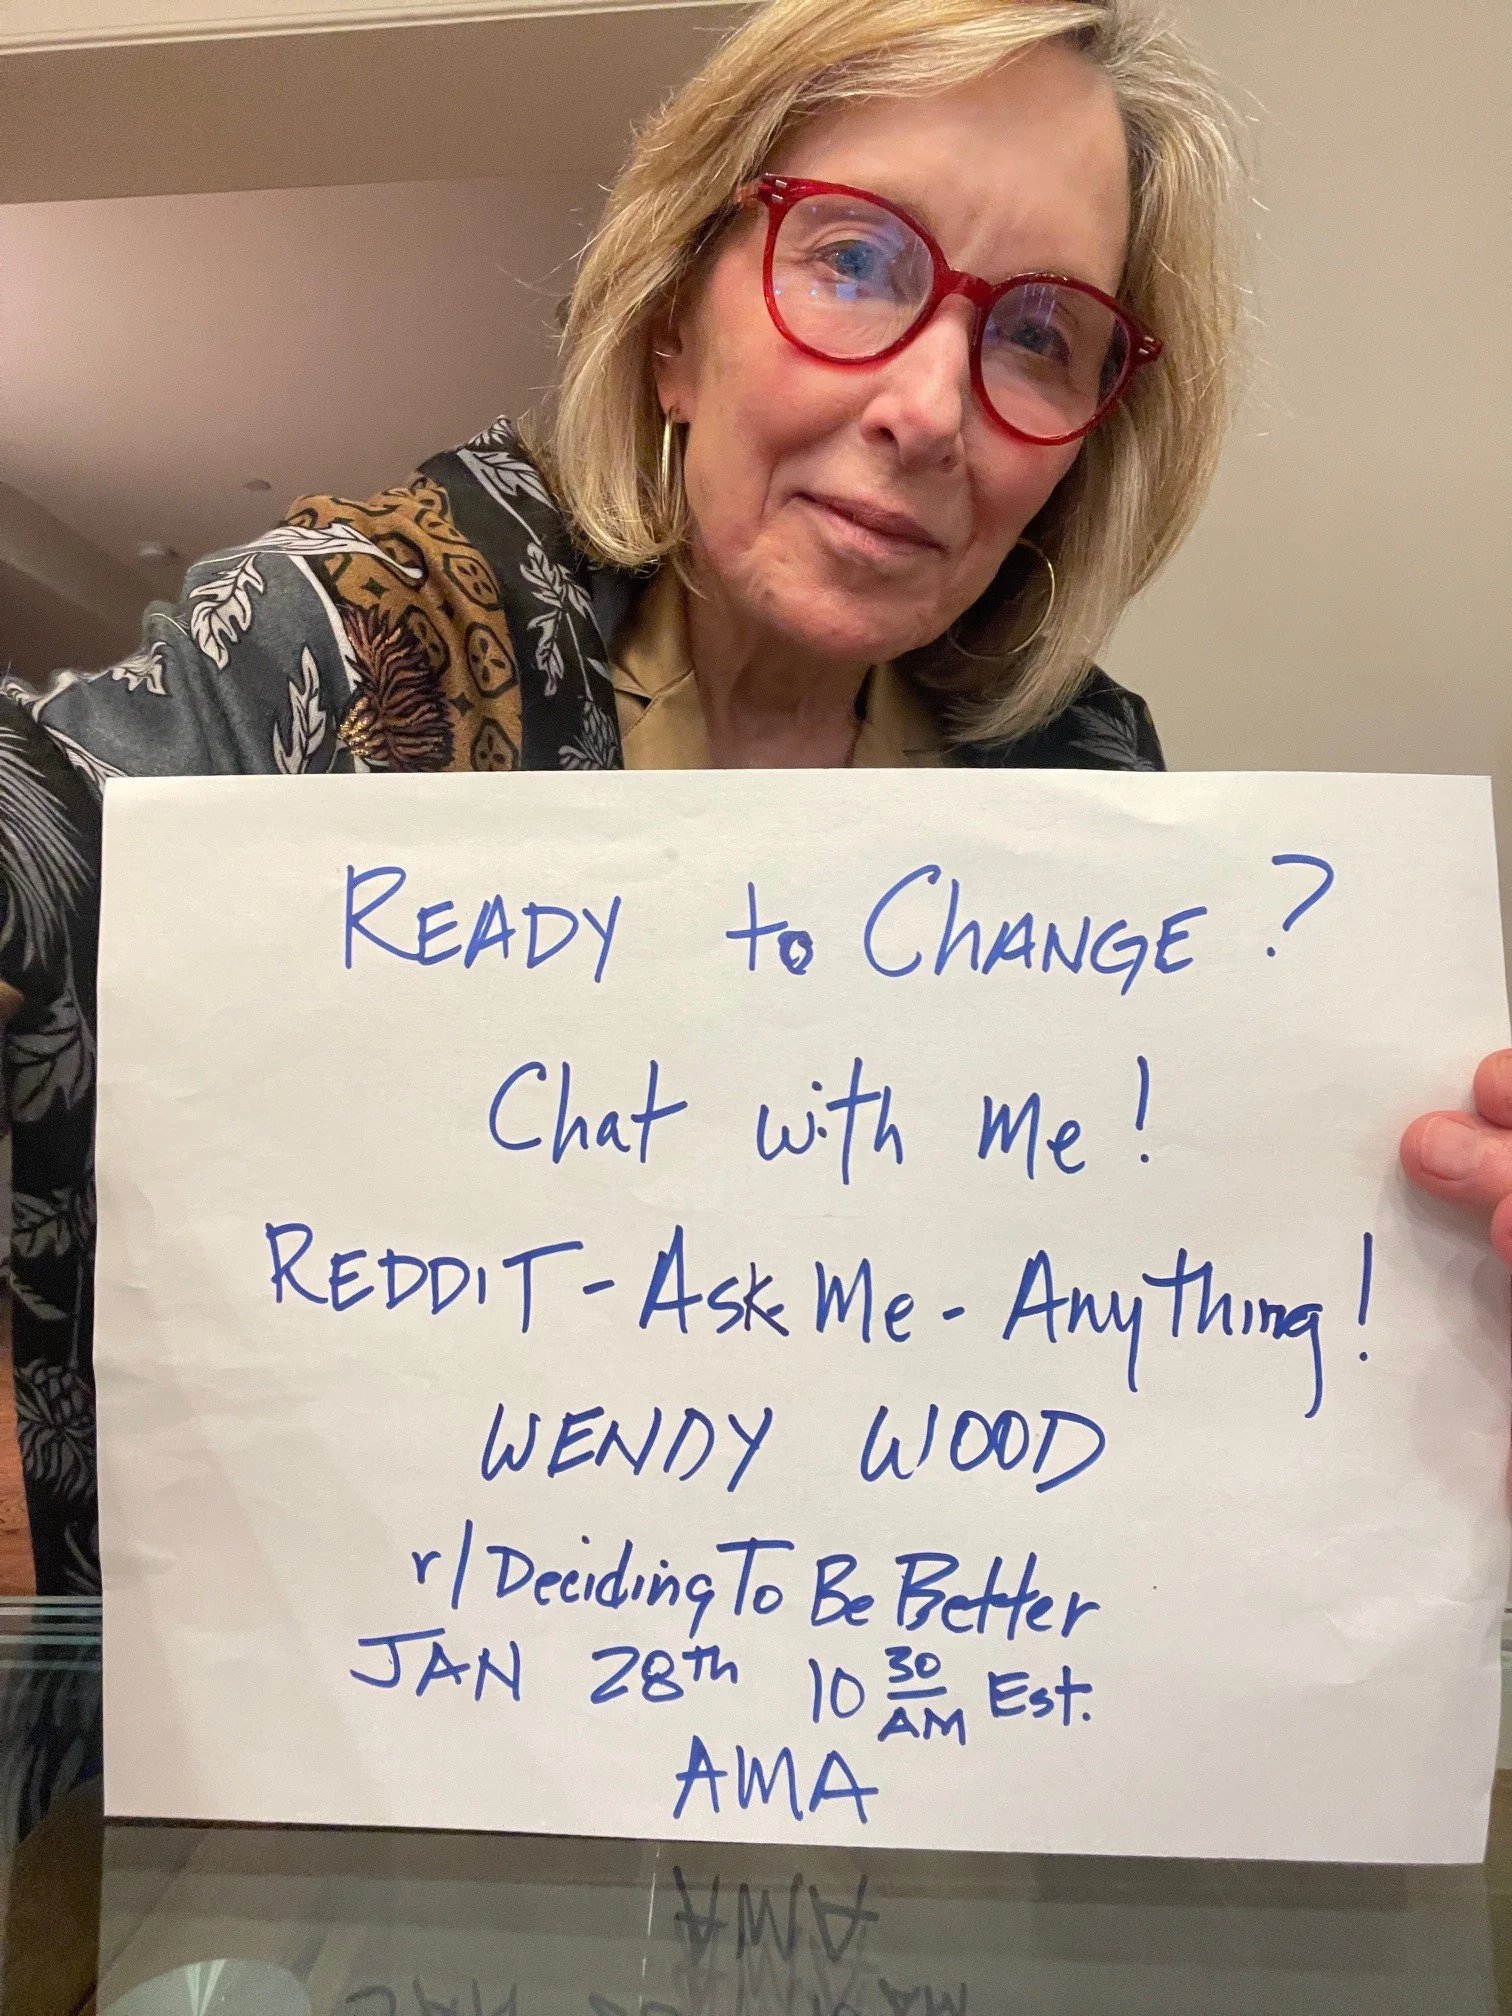 READY to ChANGE?
Chat with Me!
REDDIT - Ask Me - Anything!
WENDY WOOD
r/DecidingToBeBetter
JAN 28th 10 30 AM Est.
AMA
AMA